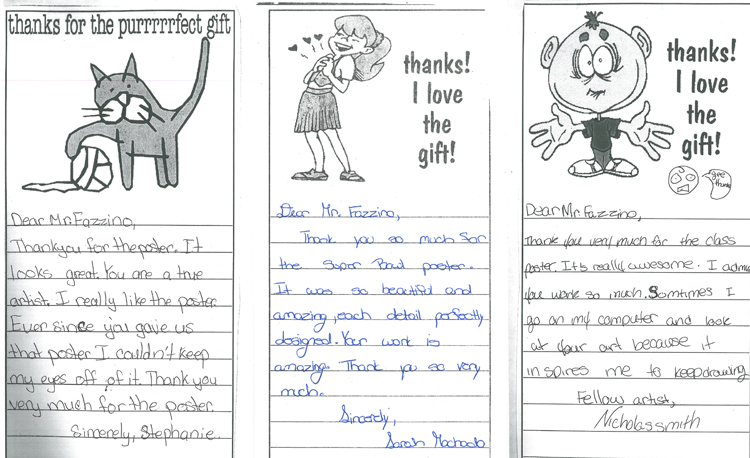 thanks for the purrrrrfect gift
Dear Mr. Fazzino,
Thankyou for the poster. It
looks great. You are a true
artist. I really like the poster
Ever since you gave us
that poster I couldn't keep
my eyes off of it. Thank you
very much for the poster.
Sincerely, Stephanie.
thanks!
I love
the
gift!
Dear Mr. Fazzino,
Thank you so much for
the Super Bowl poster.
It was so beautiful and
amazing, each detail perfectly
designed. Your work is
amazing. Thank you so very
much.
Sincerely,
Sarah
thanks!
I love
the
gift!
gee
thanks
Dear Mr. Fazzino,
Thank you very much for the class
poster. It's really awesome. I
you work so much. Somtimes I
go on my computer and look
at your art because it
inspires me to keep drawing
Fellow artist,
Nicholas smith